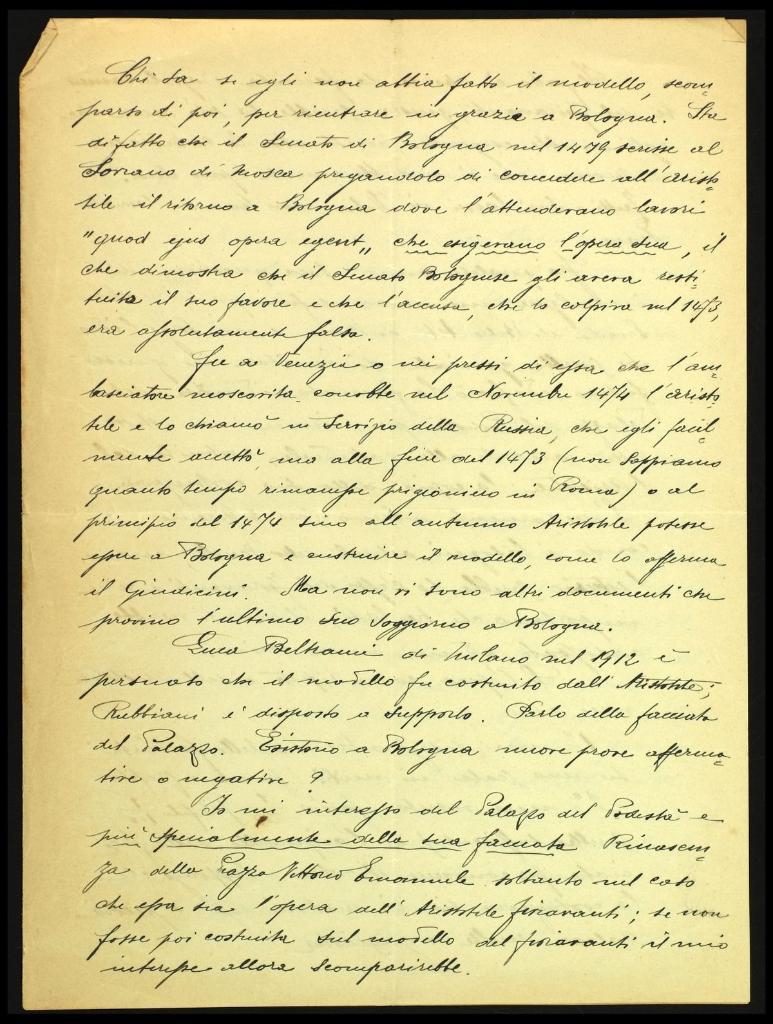 Chi sa se egli non abbia fatto il modello, scom-
parso di poi, per rientrare in grazia a Bologna. Sta
di fatto che il Senato di Bologna nel 1479 scrisse al
Sovrano di Mosca pregandolo di concedere all'Aristo-
tile il ritorno a Bologna dove l'attendevano lavori
"quod ejus opera egent„ che esigevano l'opera sua, il
che dimostra che il Senato Bolognese gli aveva resti-
tuita il suo favore e che l'accusa, che lo colpiva nel 1473,
era assolutamente falsa.
Fu a Venezia o nei pressi di essa che l'am-
basciatore moscovita conobbe nel Novembre 1474 l'Aristo-
tile e lo chiamò in servizio della Russia, che egli facil-
mente accettò, ma alla fine del 1473 (non sappiamo
quanto tempo rimanesse prigioniero in Roma) o al
principio del 1474 sino all'autunno Aristotile potesse
essere a Bologna e costruire il modello, come lo afferma
il Guidicini. Ma non vi sono altri documenti che
provino l'ultimo suo soggiorno a Bologna.
Luca Beltrami di Milano nel 1912 è
persuato che il modello fu costruito dall'Aristotile;
Rubbiani è disposto a supporlo. Parlo della facciata
del Palazzo. Esistono a Bologna nuove prove afferma-
tive o negative?
Io mi interesso del Palazzo del Podestà e
più specialmente della sua facciata Rinascen-
za della Piazza Vittorio Emanuele soltanto nel caso
che essa sia l'opera dell'Aristotile Fioravanti; se non
fosse poi costruita sul modello del Fioravanti il mio
interesse allora scomparirebbe.